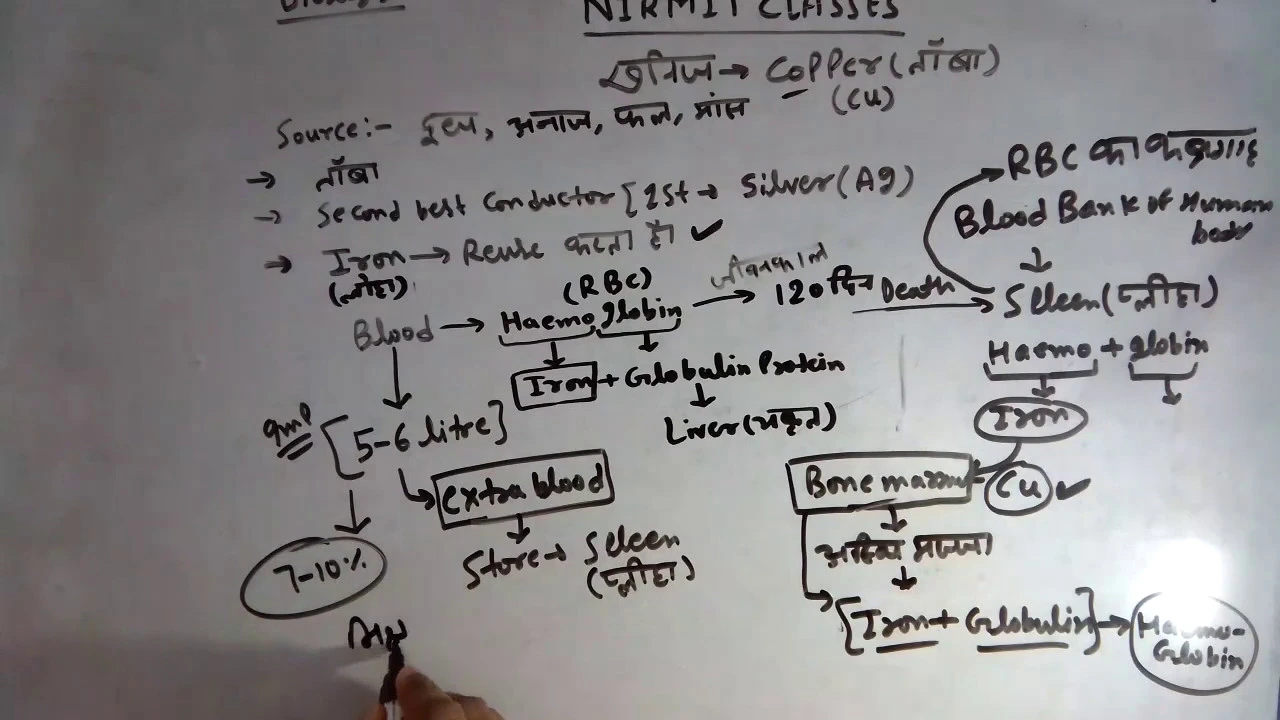 NIRMIT CLASSES
खनिज → Copper (ताँबा)
(Cu)
Source:- दूध, अनाज, फल, मांस
→ ताँबा
→ Second best Conductor [1st → Silver (Ag)
→ Iron → Reuse करता है ✓
(लोहा)
Blood → Haemoglobin → 120 दिन Death → Seleen (प्लीहा)
(RBC)
जीवनकाल
RBC का कब्रगाह
Blood Bank of Human body
Iron + Globulin Protein
Liver (यकृत)
Haemo + globin
Iron
Bone marrow
Cu ✓
अस्थि मज्जा
[Iron + Globulin] → Haemo-Globin
Imp [5-6 litre]
extra blood
Store → Seleen
(प्लीहा)
7-10%